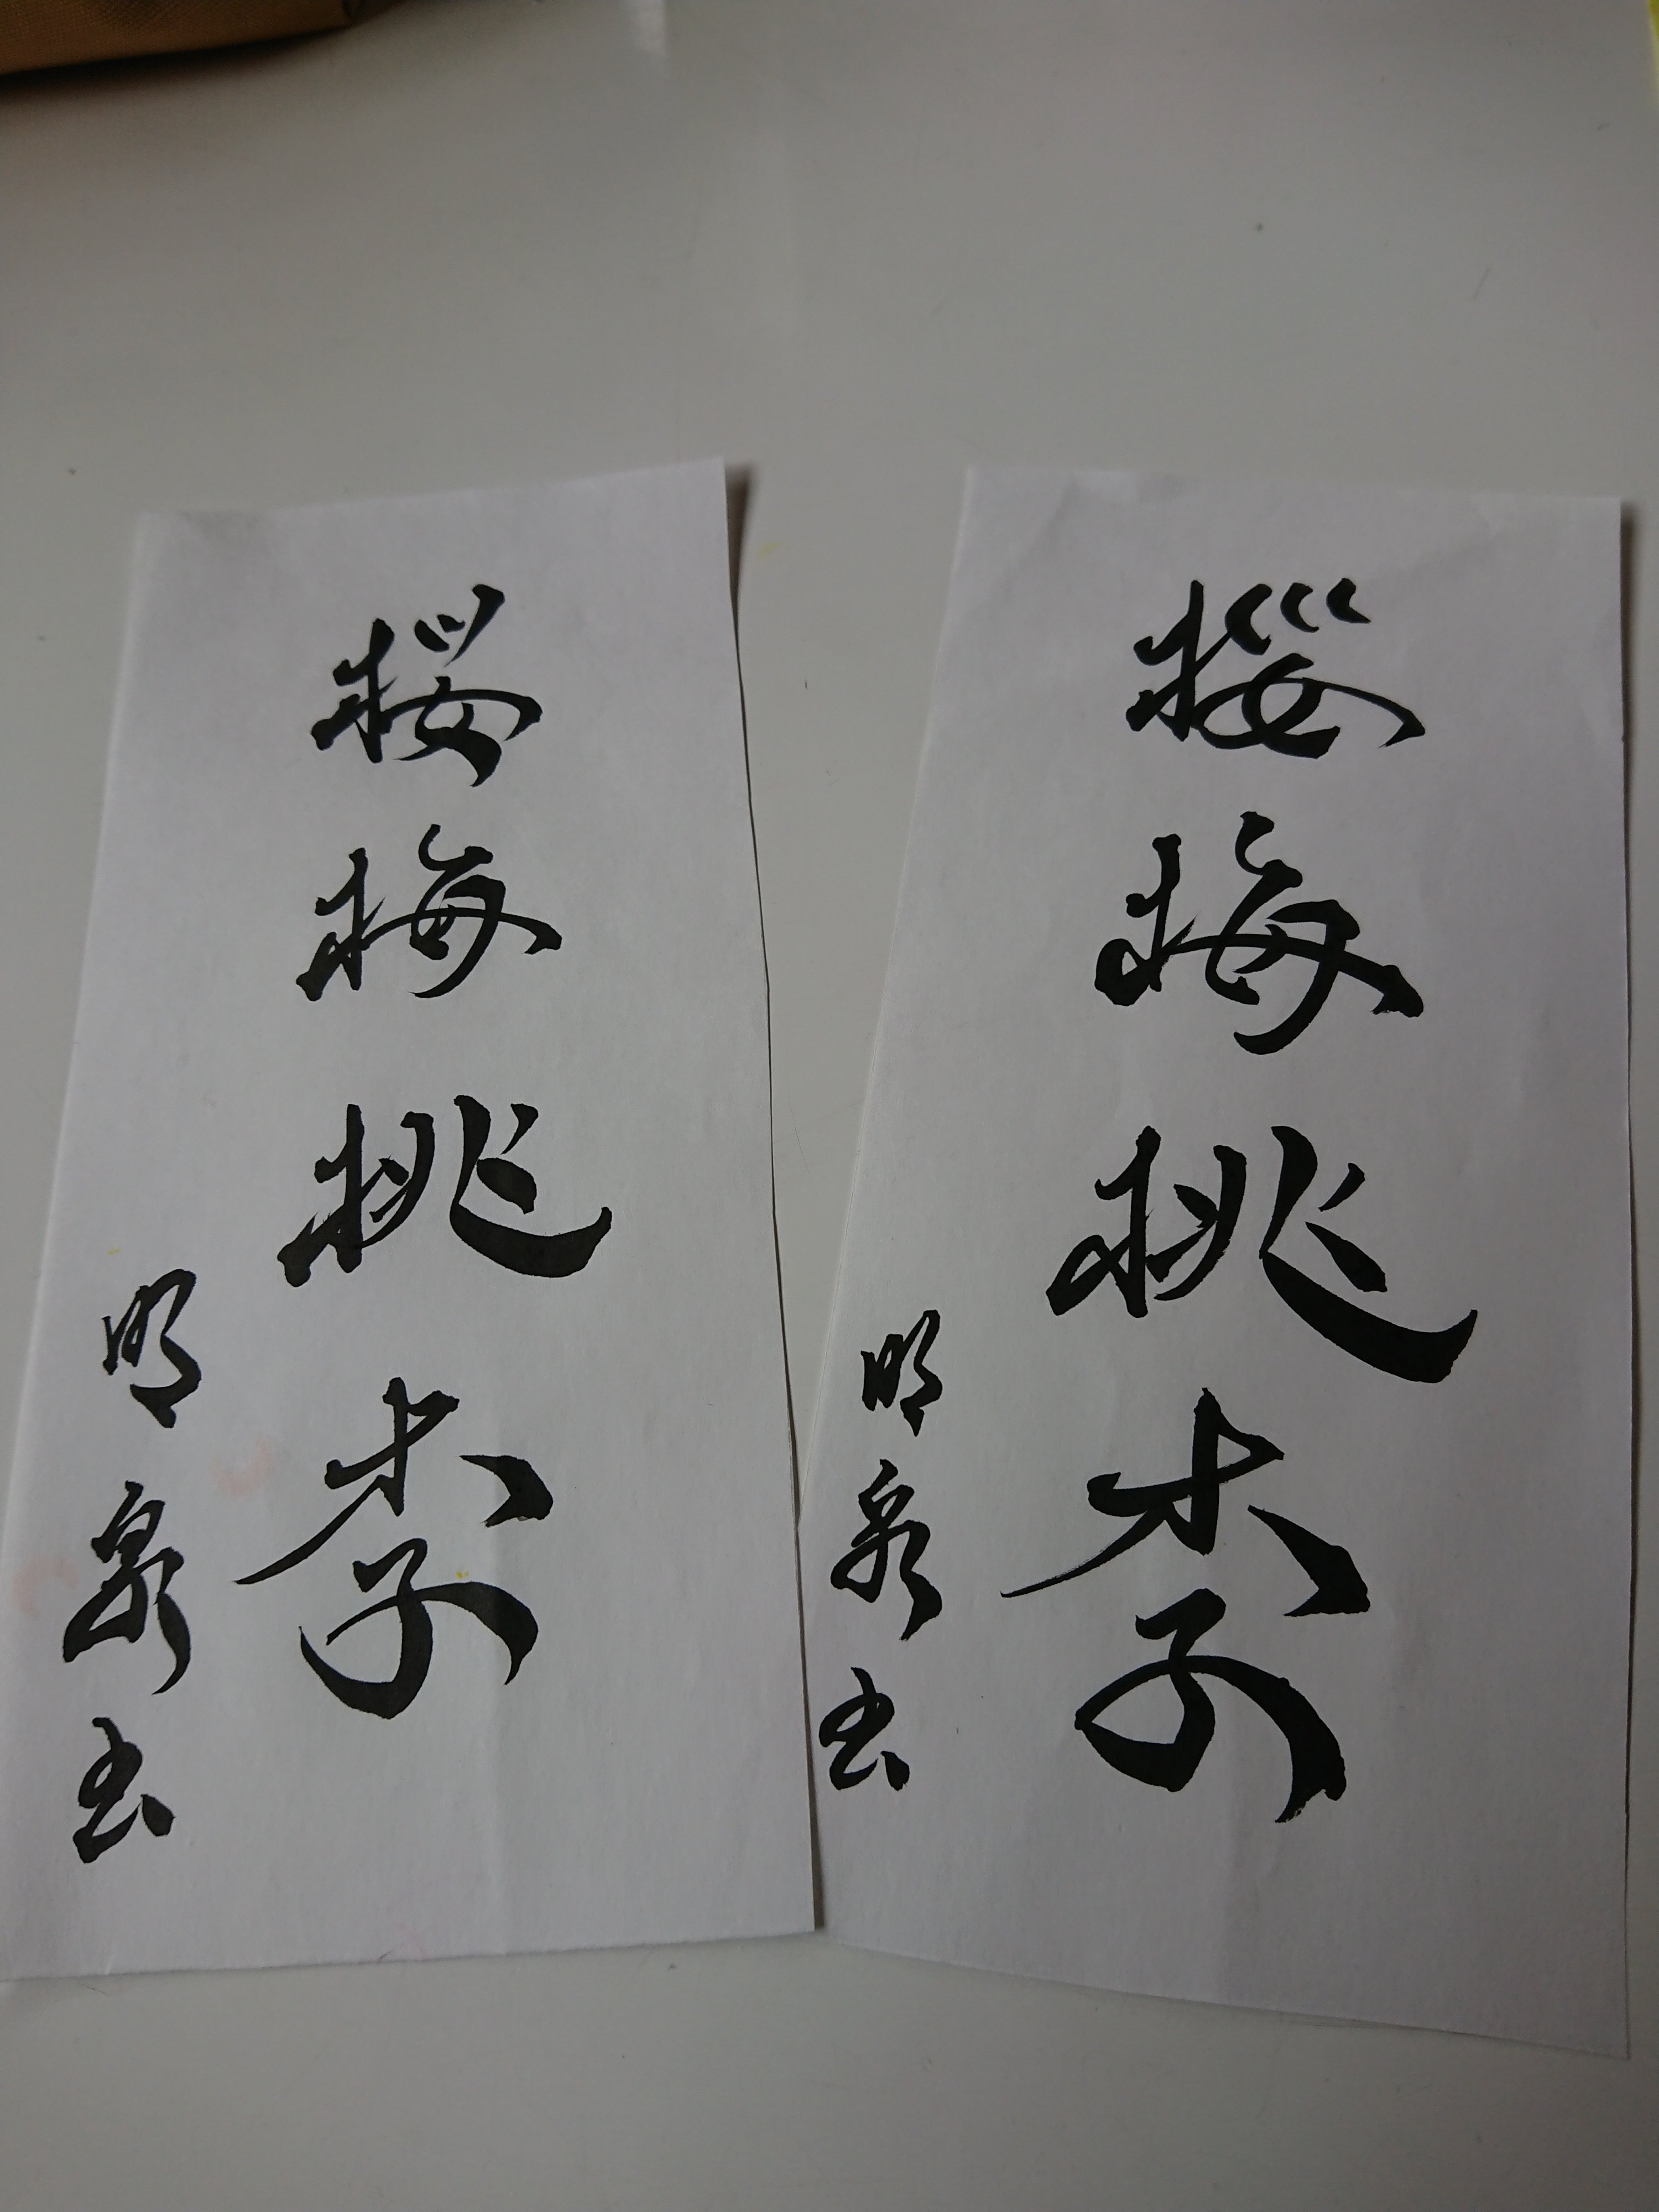 桜梅桃李
明泉书
桜梅桃李
明泉书